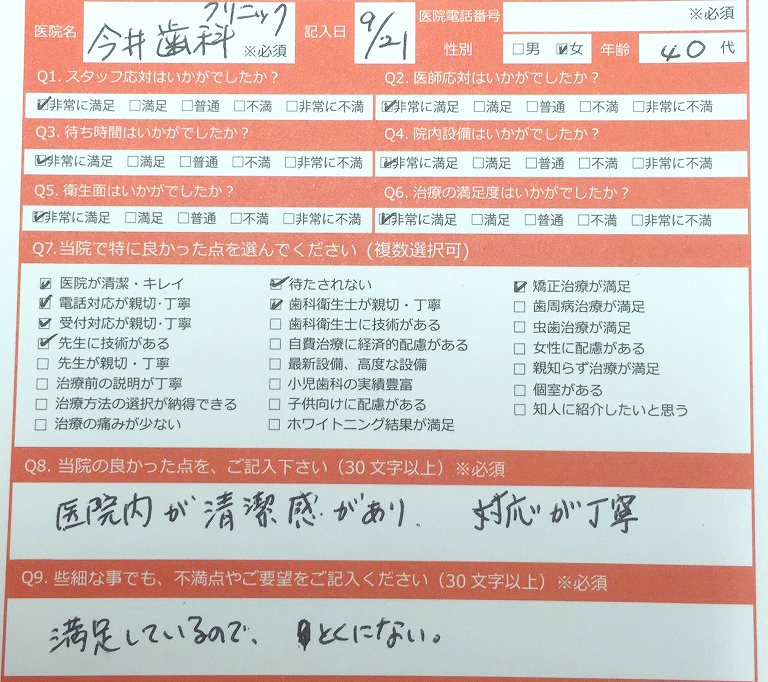 医院名 今井歯科クリニック ※必須 記入日 9/21 医院電話番号 ※必須
性別 □男 ☑女 年齢 40 代
Q1. スタッフ応対はいかがでしたか？ Q2. 医師応対はいかがでしたか？
☑非常に満足 □満足 □普通 □不満 □非常に不満 ☑非常に満足 □満足 □普通 □不満 □非常に不満
Q3. 待ち時間はいかがでしたか？ Q4. 院内設備はいかがでしたか？
☑非常に満足 □満足 □普通 □不満 □非常に不満 ☑非常に満足 □満足 □普通 □不満 □非常に不満
Q5. 衛生面はいかがでしたか？ Q6. 治療の満足度はいかがでしたか？
☑非常に満足 □満足 □普通 □不満 □非常に不満 ☑非常に満足 □満足 □普通 □不満 □非常に不満
Q7.当院で特に良かった点を選んでください (複数選択可)
☑ 医院が清潔・キレイ ☑ 待たされない ☑ 矯正治療が満足
☑ 電話対応が親切・丁寧 ☑ 歯科衛生士が親切・丁寧 □ 歯周病治療が満足
☑ 受付対応が親切・丁寧 □ 歯科衛生士に技術がある □ 虫歯治療が満足
☑ 先生に技術がある □ 自費治療に経済的配慮がある □ 女性に配慮がある
□ 先生が親切・丁寧 □ 最新設備、高度な設備 □ 親知らず治療が満足
□ 治療前の説明が丁寧 □ 小児歯科の実績豊富 □ 個室がある
□ 治療方法の選択が納得できる □ 子供向けに配慮がある □ 知人に紹介したいと思う
□ 治療の痛みが少ない □ ホワイトニング結果が満足
Q8. 当院の良かった点を、ご記入下さい（30 文字以上）※必須
医院内が清潔感があり、 対応が丁寧
Q9. 些細な事でも、不満点やご要望をご記入ください（30 文字以上）※必須
満足しているので、 とくにない。